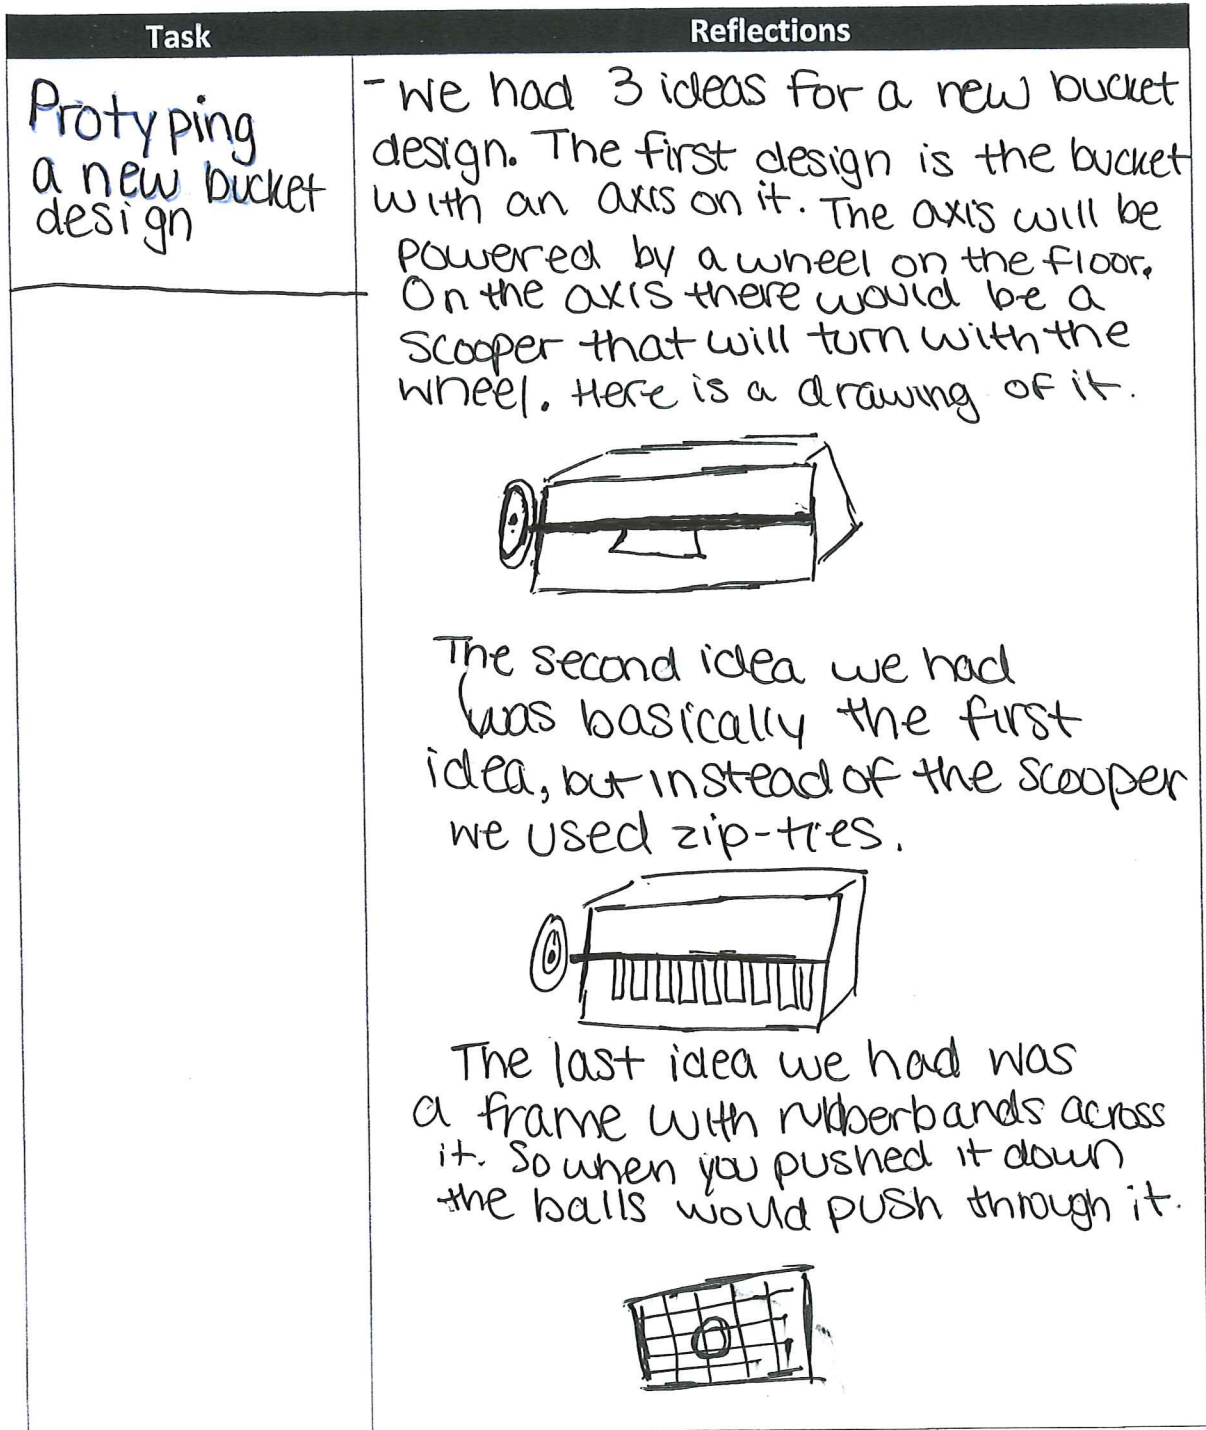 Task
Reflections
Protyping
a new bucket
design
- We had 3 ideas for a new bucket
design. The first design is the bucket
with an axis on it. The axis will be
powered by a wheel on the floor.
On the axis there would be a
scooper that will turn with the
wheel. Here is a drawing of it.
The second idea we had
was basically the first
idea, but instead of the scooper
we used zip-ties.
The last idea we had was
a frame with rubberbands across
it. So when you pushed it down
the balls would push through it.